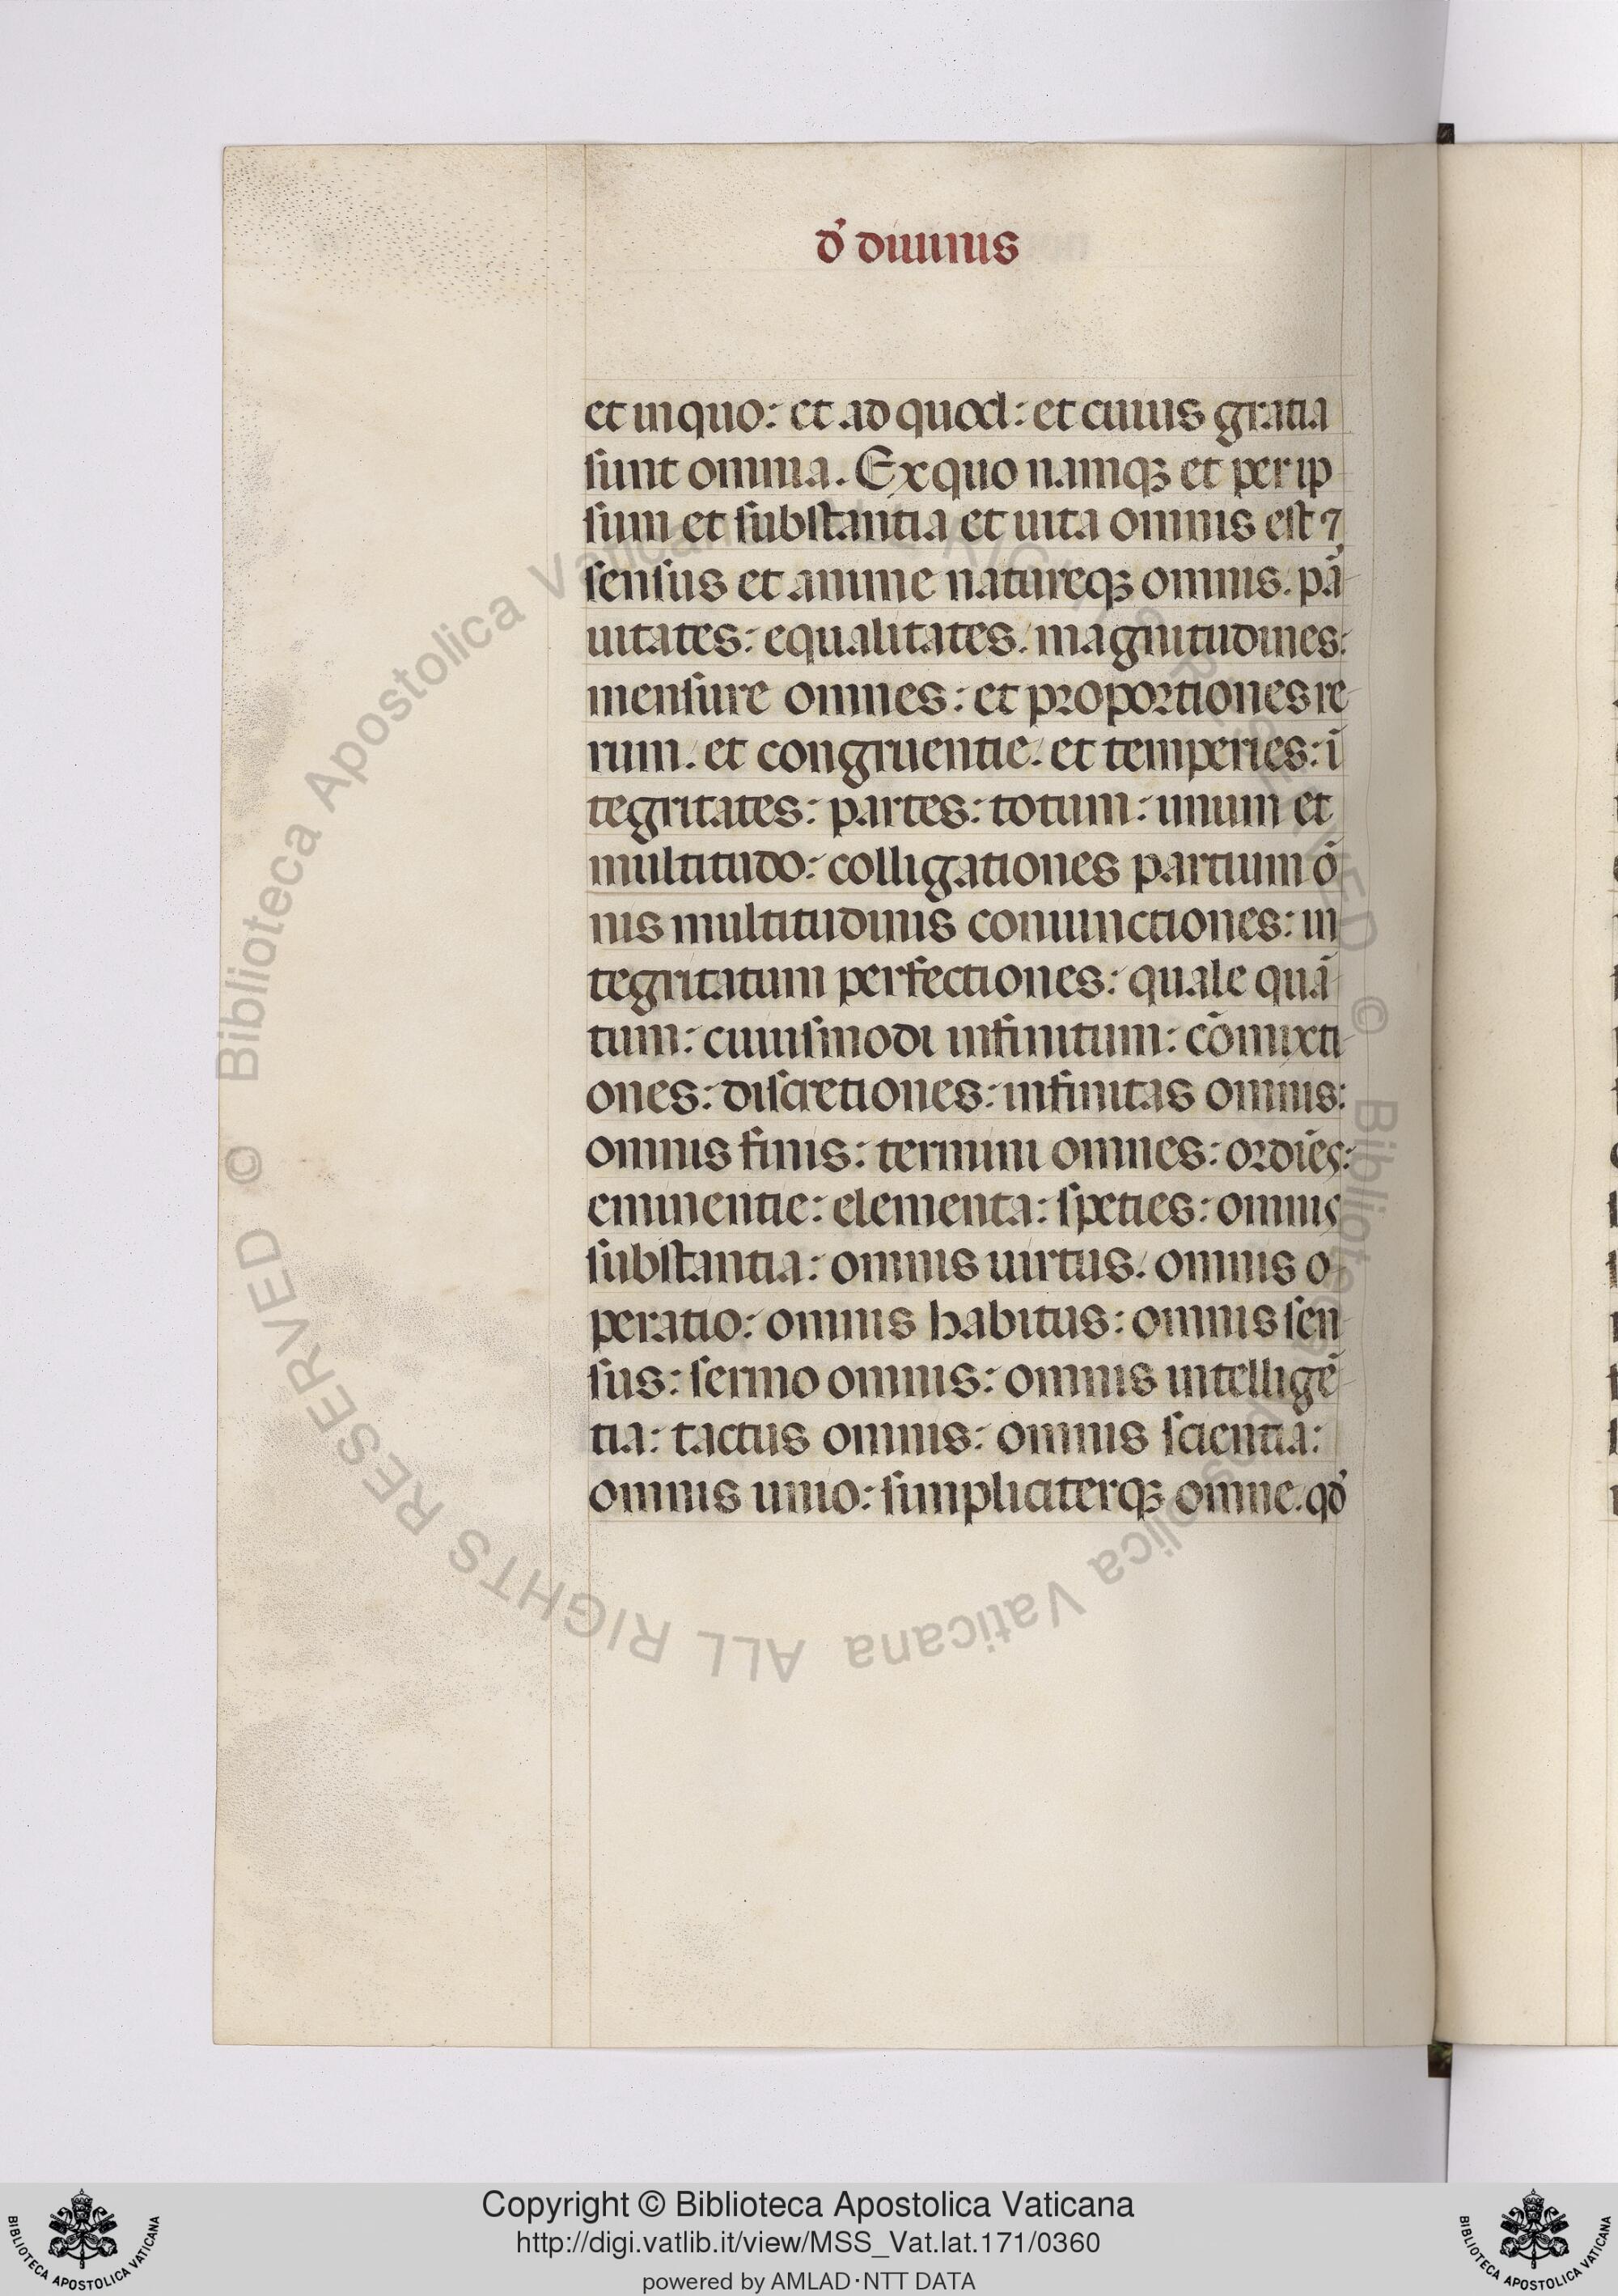 d̾ diuinis
et in quo: et ad quod: et cuius gratia
sunt omnia. Ex quo namqꝫ et per ip
sum et substantia et uita omnis est ⁊
sensus et anime natureqꝫ omnis. pa̾
uitates: equalitates. magnitudines:
mensure omnes: et proportiones re
rum. et congruentie. et temperies: ī
tegritates: partes: totum: unum et
multitudo: colligationes partium ō
nis multitudinis coniunctiones: in
tegritatum perfectiones: quale quā
tum: cuiusmodi infinitum: cōmixti
ones: discretiones: infinitas omnis:
omnis finis: termini omnes: ordīes:
eminentie: elementa: speties: omnis
substantia: omnis uirtus. omnis o
peratio: omnis habitus: omnis sen
sus: sermo omnis: omnis intelligē
tia: tactus omnis: omnis scientia:
omnis unio: simpliciterqꝫ omne. qd̾
Biblioteca Apostolica Vaticana ALL RIGHTS RESERVED ©
Copyright © Biblioteca Apostolica Vaticana
http://digi.vatlib.it/view/MSS_Vat.lat.171/0360
powered by AMLAD·NTT DATA
BIBLIOTECA APOSTOLICA VATICANA
BIBLIOTECA APOSTOLICA VATICANA